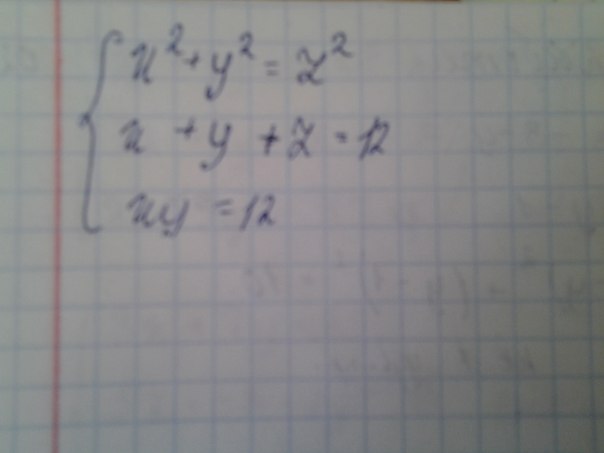 x² + y² = z²
x + y + z = 12
xy = 12